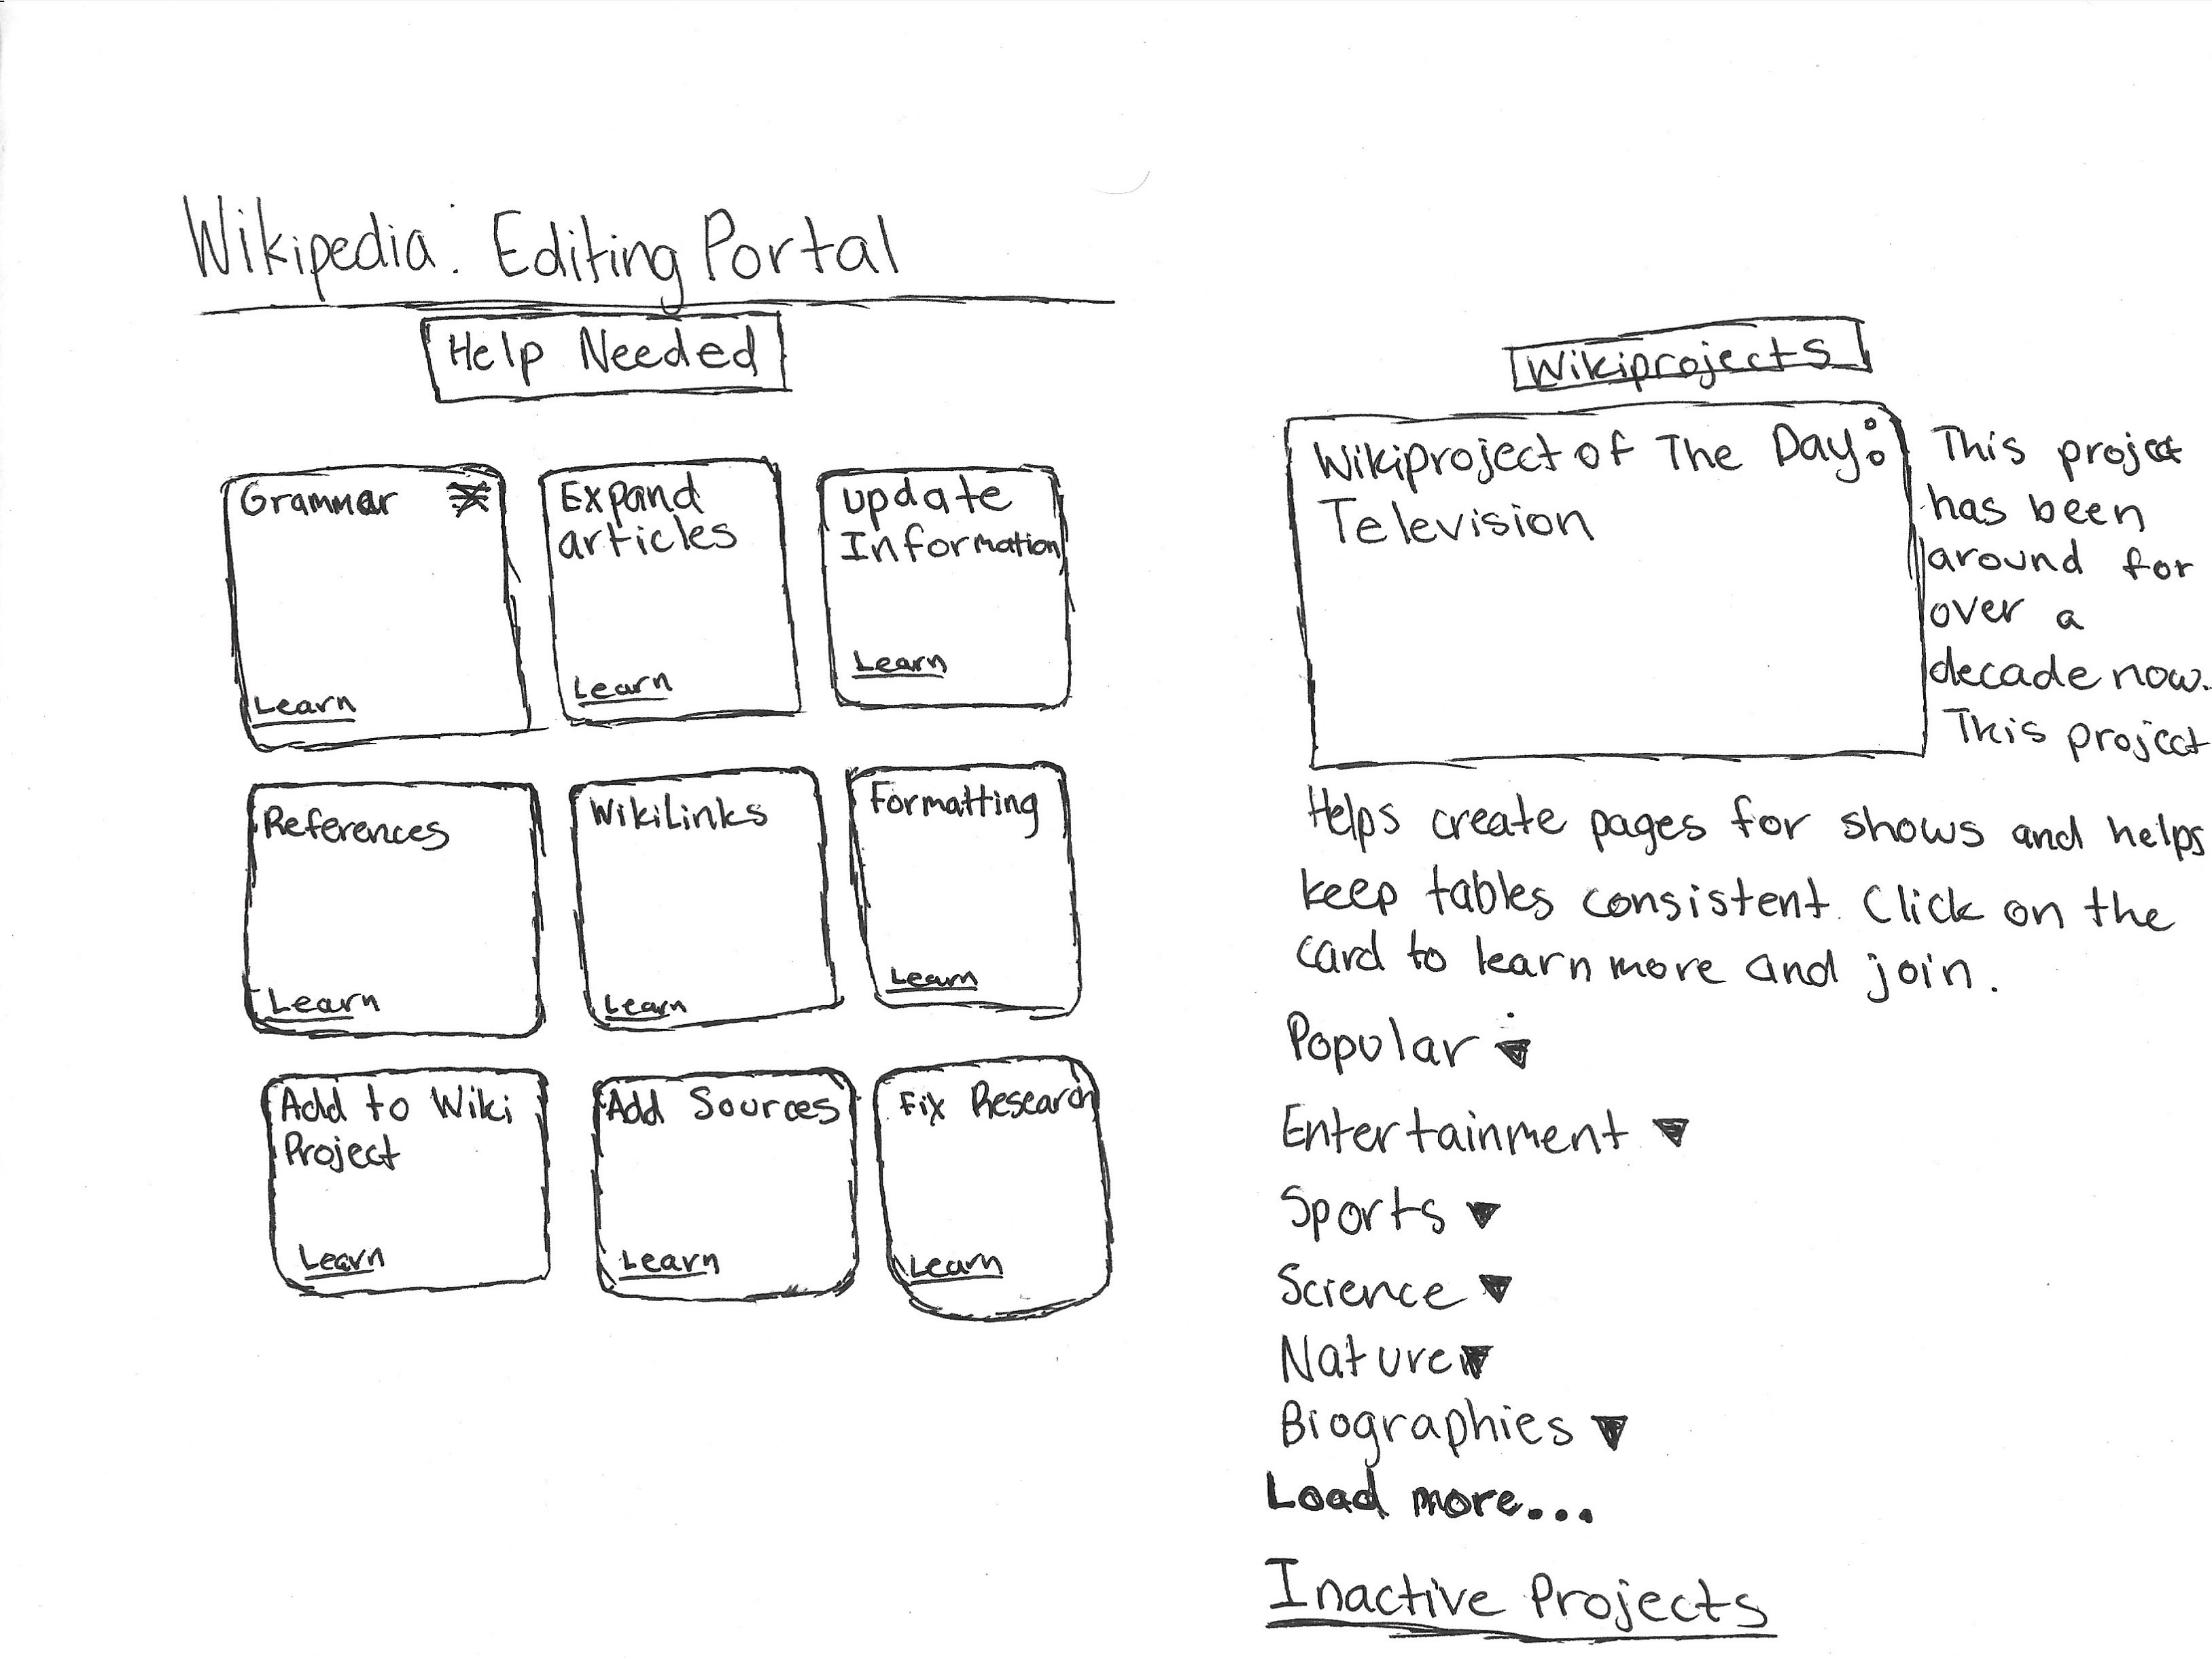 Wikipedia: Editing Portal
Help Needed
Grammar
Learn
Expand
articles
Learn
update
Information
Learn
References
Learn
WikiLinks
Learn
Formatting
Learn
Add to Wiki
Project
Learn
Add Sources
Learn
Fix Research
Learn
Wikiprojects
Wikiproject of The Day:
Television
This project
has been
around for
over a
decade now.
This project
Helps create pages for shows and helps
keep tables consistent. Click on the
card to learn more and join.
Popular
Entertainment
Sports
Science
Nature
Biographies
Load more...
Inactive Projects